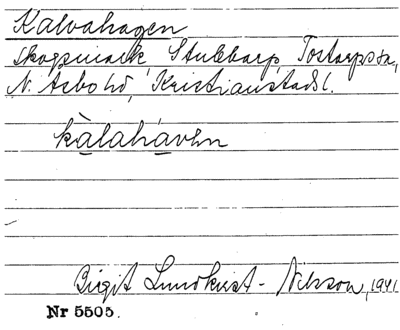 Kalvahagen
Skogsmark, Stubbarp, Tostarps sn,
N. Åsbo hd, Kristianstads l.
kàlahávен
Birgit Lundkvist-Nilsson, 1941
Nr 5505.